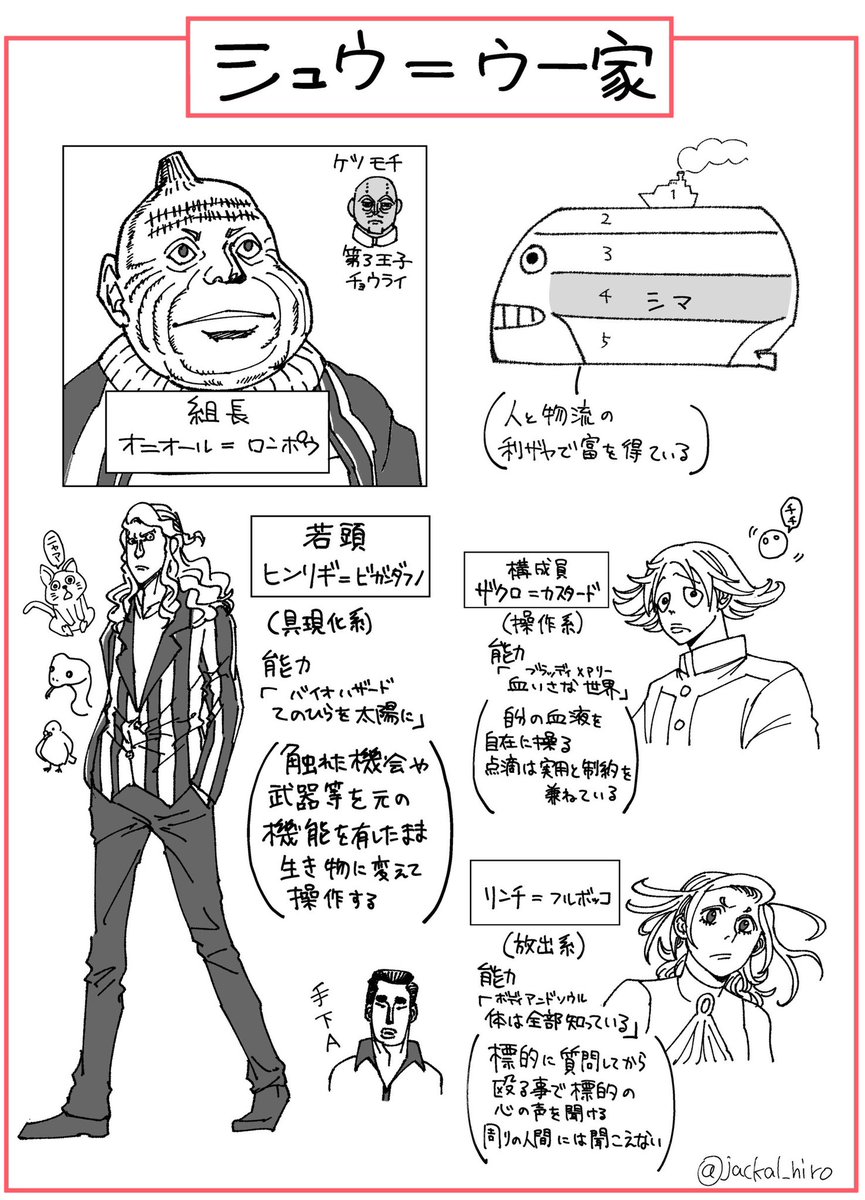 シュウ=ウ一家
ケツモチ
第3王子
チョウライ
組長
オニオール=ロンポウ
1
2
3
4 シマ
5
人と物流の
利ザヤで富を得ている
ニャア
若頭
ヒンリギ=ビガンダフノ
(具現化系)
能力
バイオハザード
「てのひらを太陽に」
触れた機会や
武器等を元の
機能を有したまま
生き物に変えて
操作する
手下A
チチ
構成員
ザクロ=カスタード
(操作系)
能力
ブラッディメアリー
「血いさな世界」
自分の血液を
自在に操る
点滴は実用と制約を
兼ねている
リンチ=フルボッコ
(放出系)
能力
ボディアンドソウル
「体は全部知っている」
標的に質問してから
殴る事で標的の
心の声を聞ける
周りの人間には聞こえない
@jackal_hiro